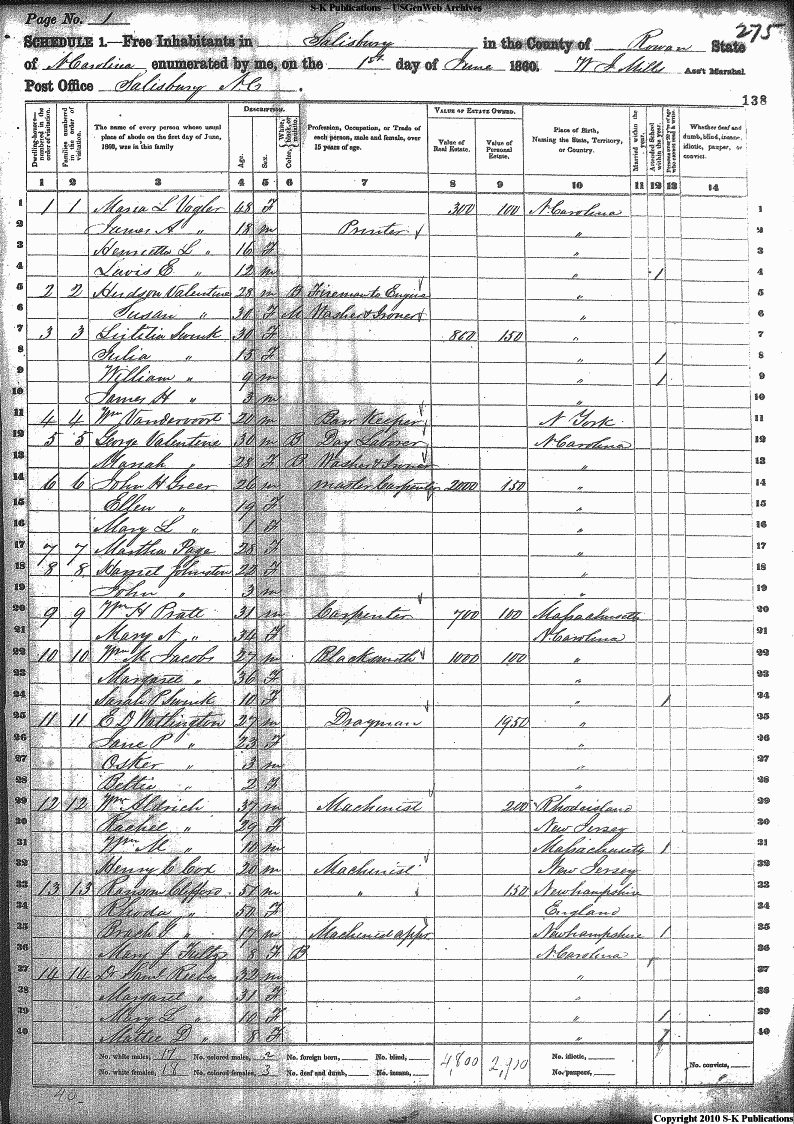 S-K Publications – USGenWeb Archives
Page No. 1
275
SCHEDULE 1.—Free Inhabitants in Salisbury in the County of Rowan State
of N Carolina enumerated by me, on the 1st day of June 1860. W J Mills Ass't Marshal.
Post Office Salisbury N C.
138
Dwelling-houses numbered in the order of visitation.
Families numbered in the order of visitation.
The name of every person whose usual place of abode on the first day of June, 1860, was in this family
DESCRIPTION.
Age.
Sex.
Color, White, black, or mulatto.
Profession, Occupation, or Trade of each person, male and female, over 15 years of age.
VALUE OF ESTATE OWNED.
Value of Real Estate.
Value of Personal Estate.
Place of Birth, Naming the State, Territory, or Country.
Married within the year.
Attended School within the year.
Persons over 20 y'rs of age who cannot read & write.
Whether deaf and dumb, blind, insane, idiotic, pauper, or convict.
1 2 3 4 5 6 7 8 9 10 11 12 13 14
1 1 1 Maria L Vogler 48 F 300 100 N Carolina 1
2 James A " 18 m Printer " 2
3 Henrietta L " 16 F " 3
4 Lewis E " 12 m " 1 4
5 2 2 Hudson Valentine 28 m B Fireman to Engine " 5
6 Susan " 30 F M Washer & Ironer " 6
7 3 3 Lutitia Swink 30 F 860 150 " 7
8 Julia " 15 F " 1 8
9 William " 9 m " 1 9
10 James H " 3 m " 10
11 4 4 Wm Vandervoort 20 m Barr Keeper N York 11
12 5 5 George Valentine 30 m B Day Laborer N Carolina 12
13 Mariah " 28 F B Washer & Ironer " 13
14 6 6 John H Greer 26 m master Carpenter 2000 150 " 14
15 Ellen " 19 F " 15
16 Mary L " 1 F " 16
17 7 7 Martha Page 28 F " 17
18 8 8 Harriet Johnston 22 F " 18
19 John " 3 m " 19
20 9 9 Wm H Pratt 31 m Carpenter 700 100 Massachusetts 20
21 Mary A " 34 F N Carolina 21
22 10 10 Wm M Jacobs 27 m Blacksmith 1000 100 " 22
23 Margaret " 36 F " 23
24 Sarah P Swink 10 F " 1 24
25 11 11 E D Wethington 27 m Drayman 1950 " 25
26 Jane P " 23 F " 26
27 Osker " 3 m " 27
28 Bettie " 2 F " 28
29 12 12 Wm Aldrich 37 m Machinist 200 Rhodeisland 29
30 Rachel " 29 F New Jersey 30
31 Wm M " 10 m Massachusetts 1 31
32 Henry C Cox 20 m Machinist New Jersey 32
33 13 13 Ransom Clifford 51 m " 150 Newhampshire 33
34 Rhoda " 50 F England 34
35 " 17 m Machinist appr Newhampshire 1 35
36 Mary J 8 F B N Carolina 36
37 14 14 Dr 32 m " 37
38 Margaret " 31 F " 38
39 Mary L " 10 F " 1 39
40 Mattie D " 8 F " 1 40
No. white males, 17 No. colored males, 2 No. foreign born, No. blind, 4,800 No. idiotic,
No. white females, 18 No. colored females, 3 No. deaf and dumb, No. insane, No. paupers, No. convicts,
40
Copyright 2010 S-K Publications